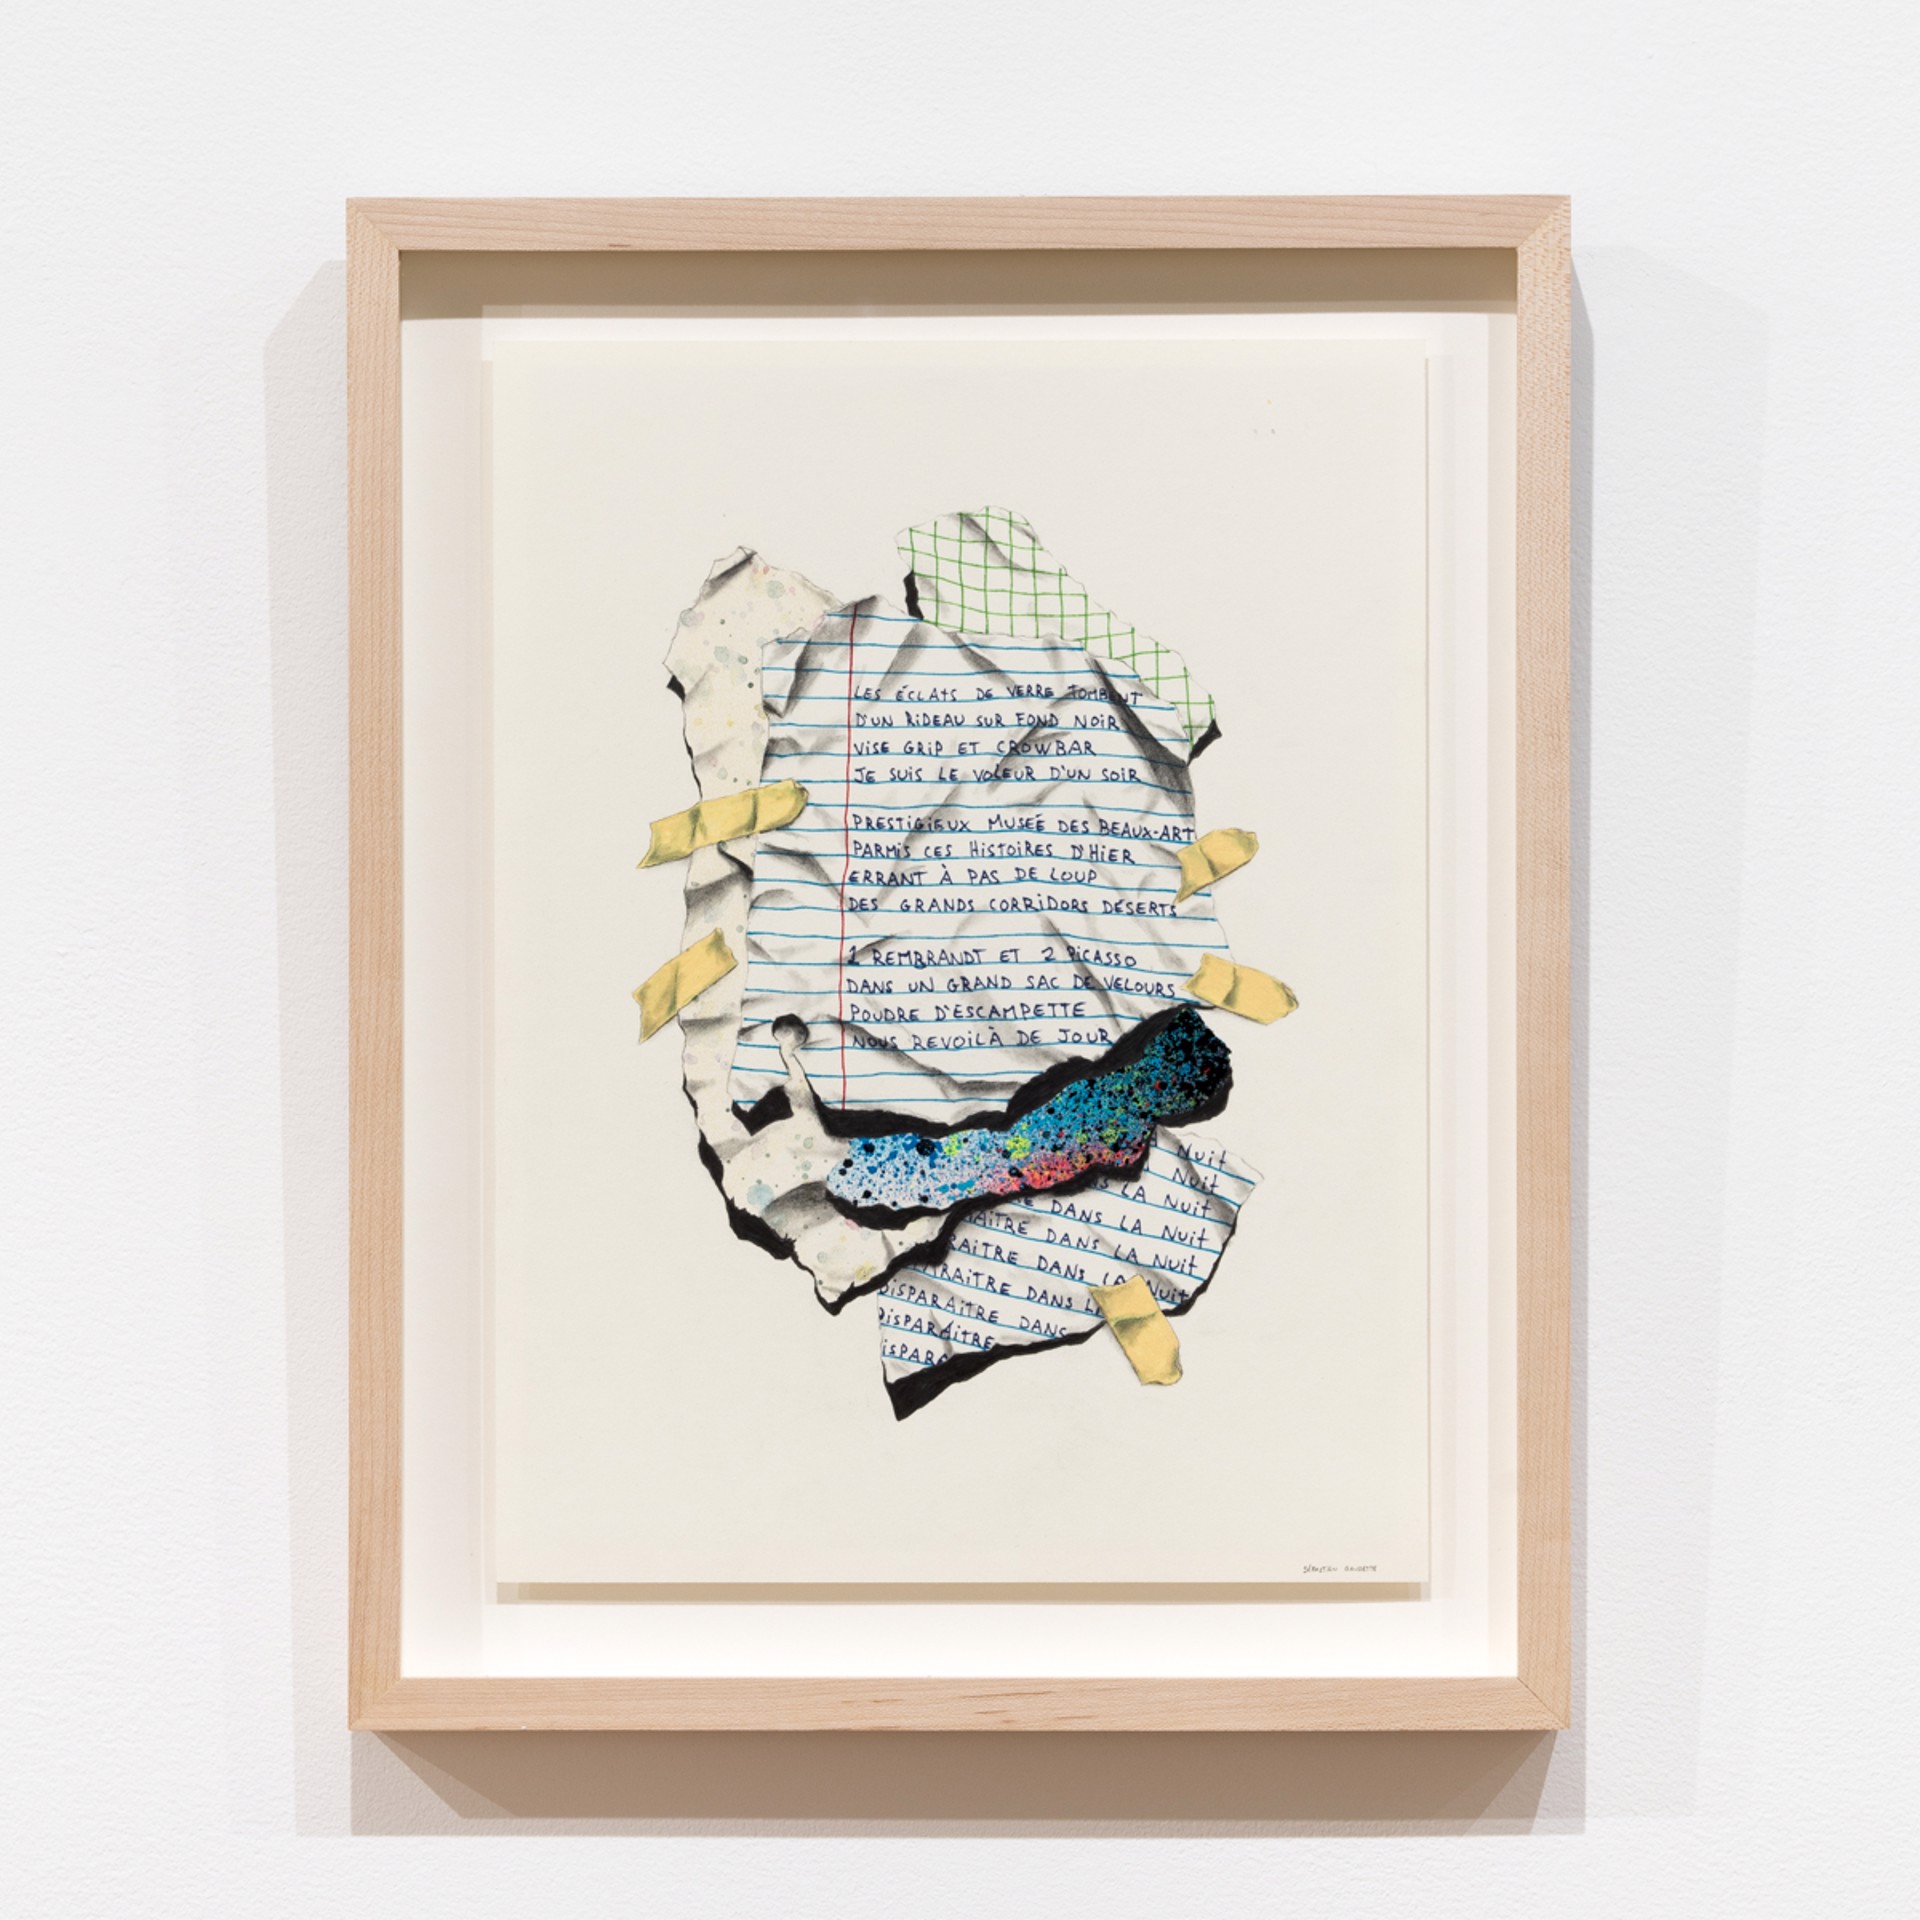 LES ÉCLATS DE VERRE TOMBENT
D'UN RIDEAU SUR FOND NOIR
VISE GRIP ET CROWBAR
JE SUIS LE VOLEUR D'UN SOIR
PRESTIGIEUX MUSEÉ DES BEAUX-ART
PARMIS CES HISTOIRES D'HIER
ERRANT À PAS DE LOUP
DES GRANDS CORRIDORS DÉSERTS
1 REMBRANDT ET 2 PICASSO
DANS UN GRAND SAC DE VELOURS
POUDRE D'ESCAMPETTE
NOUS REVOILÀ DE JOUR
NUIT
NUIT
S LA NUIT
DANS LA NUIT
AITRE DANS LA NUIT
RAITRE DANS LA NUIT
ARAITRE DANS LA NUIT
DISPARAITRE DANS
DISPARAITRE
ISPARA
SÉBASTIEN GAUDETTE